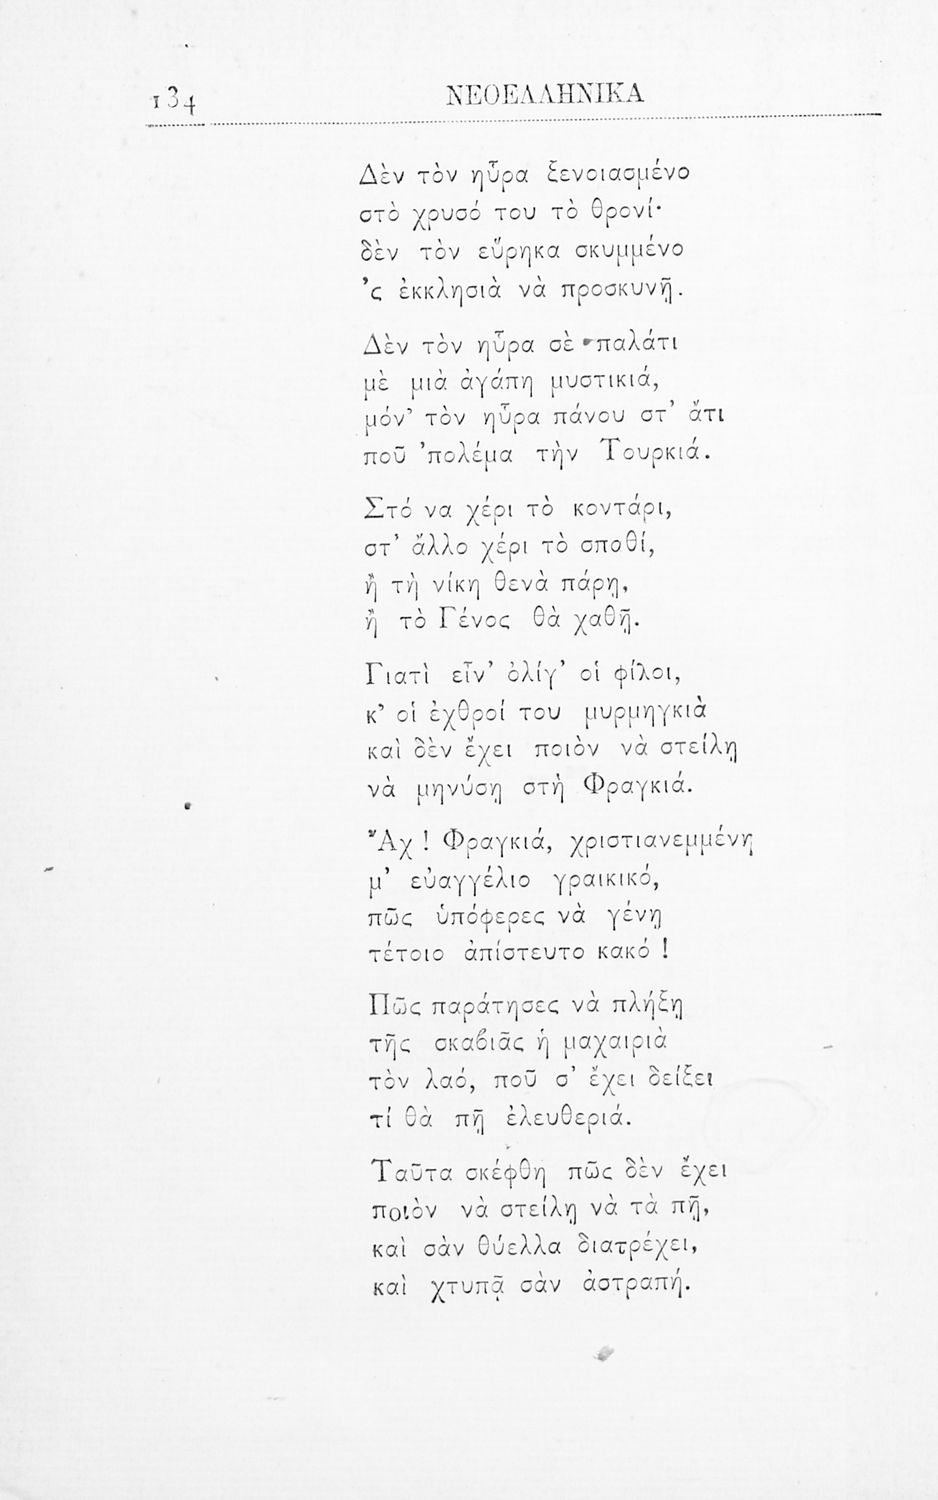 134 ΝΕΟΕΛΛΗΝΙΚΑ
Δὲν τὸν ηὖρα ξενοιασμένο
στὸ χρυσό του τὸ θρονί·
δὲν τὸν εὕρηκα σκυμμένο
'ς ἐκκλησιὰ νὰ προσκυνῇ.
Δὲν τὸν ηὖρα σὲ παλάτι
μὲ μιὰ ἀγάπη μυστικιά,
μόν' τὸν ηὖρα πάνου στ' ἄτι
ποῦ 'πολέμα τὴν Τουρκιά.
Στό να χέρι τὸ κοντάρι,
στ' ἄλλο χέρι τὸ σποθί,
ἢ τὴ νίκη θενὰ πάρῃ,
ἢ τὸ Γένος θὰ χαθῇ.
Γιατὶ εἶν' ὀλίγ' οἱ φίλοι,
κ' οἱ ἐχθροί του μυρμηγκιὰ
καὶ δὲν ἔχει ποιὸν νὰ στείλῃ
νὰ μηνύσῃ στὴ Φραγκιά.
Ἂχ ! Φραγκιά, χριστιανεμμένη
μ' εὐαγγέλιο γραικικό,
πῶς ὑπόφερες νὰ γένῃ
τέτοιο ἀπίστευτο κακό !
Πῶς παράτησες νὰ πλήξῃ
τῆς σκαϐιᾶς ἡ μαχαιριὰ
τὸν λαό, ποῦ σ' ἔχει δείξει
τί θὰ πῇ ἐλευθεριά.
Ταῦτα σκέφθη πῶς δὲν ἔχει
ποιὸν νὰ στείλῃ νὰ τὰ πῇ,
καὶ σὰν θύελλα διατρέχει,
καὶ χτυπᾷ σὰν ἀστραπή.